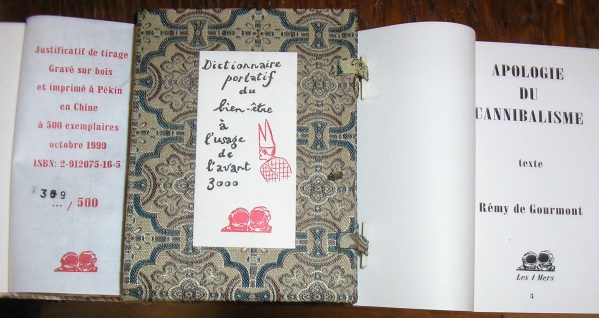 Justificatif de tirage
Gravé sur bois
et imprimé à Pékin
en Chine
à 500 exemplaires
octobre 1999
ISBN: 2-912075-16-5
309
... / 500
Dictionnaire
portatif
du
bien-être
à
l'usage
de
l'avant
3000
APOLOGIE
DU
CANNIBALISME
texte
Rémy de Gourmont
Les 4 Mers
3